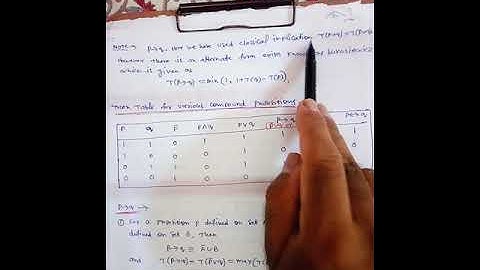 Note → p→q, here we have used classical implication T(p→q)=T(p̄∨q)
However there is an alternate form exists known as Lukasiewicz
which is given as
T(p→q) = min(1, 1+T(q)-T(p))
Truth Table for various compound propositions
p q p̄ p∧q p∨q p→q
1 1 0 1 1 1
1 0 0 0 1
0 1 1 0 1
0 0 1 0 0
p→q →
① Let a proposition p defined on set A
defined on set B, then
p→q ≡ Ā∪B
and T(p→q) = T(p̄∨q) = max(T(